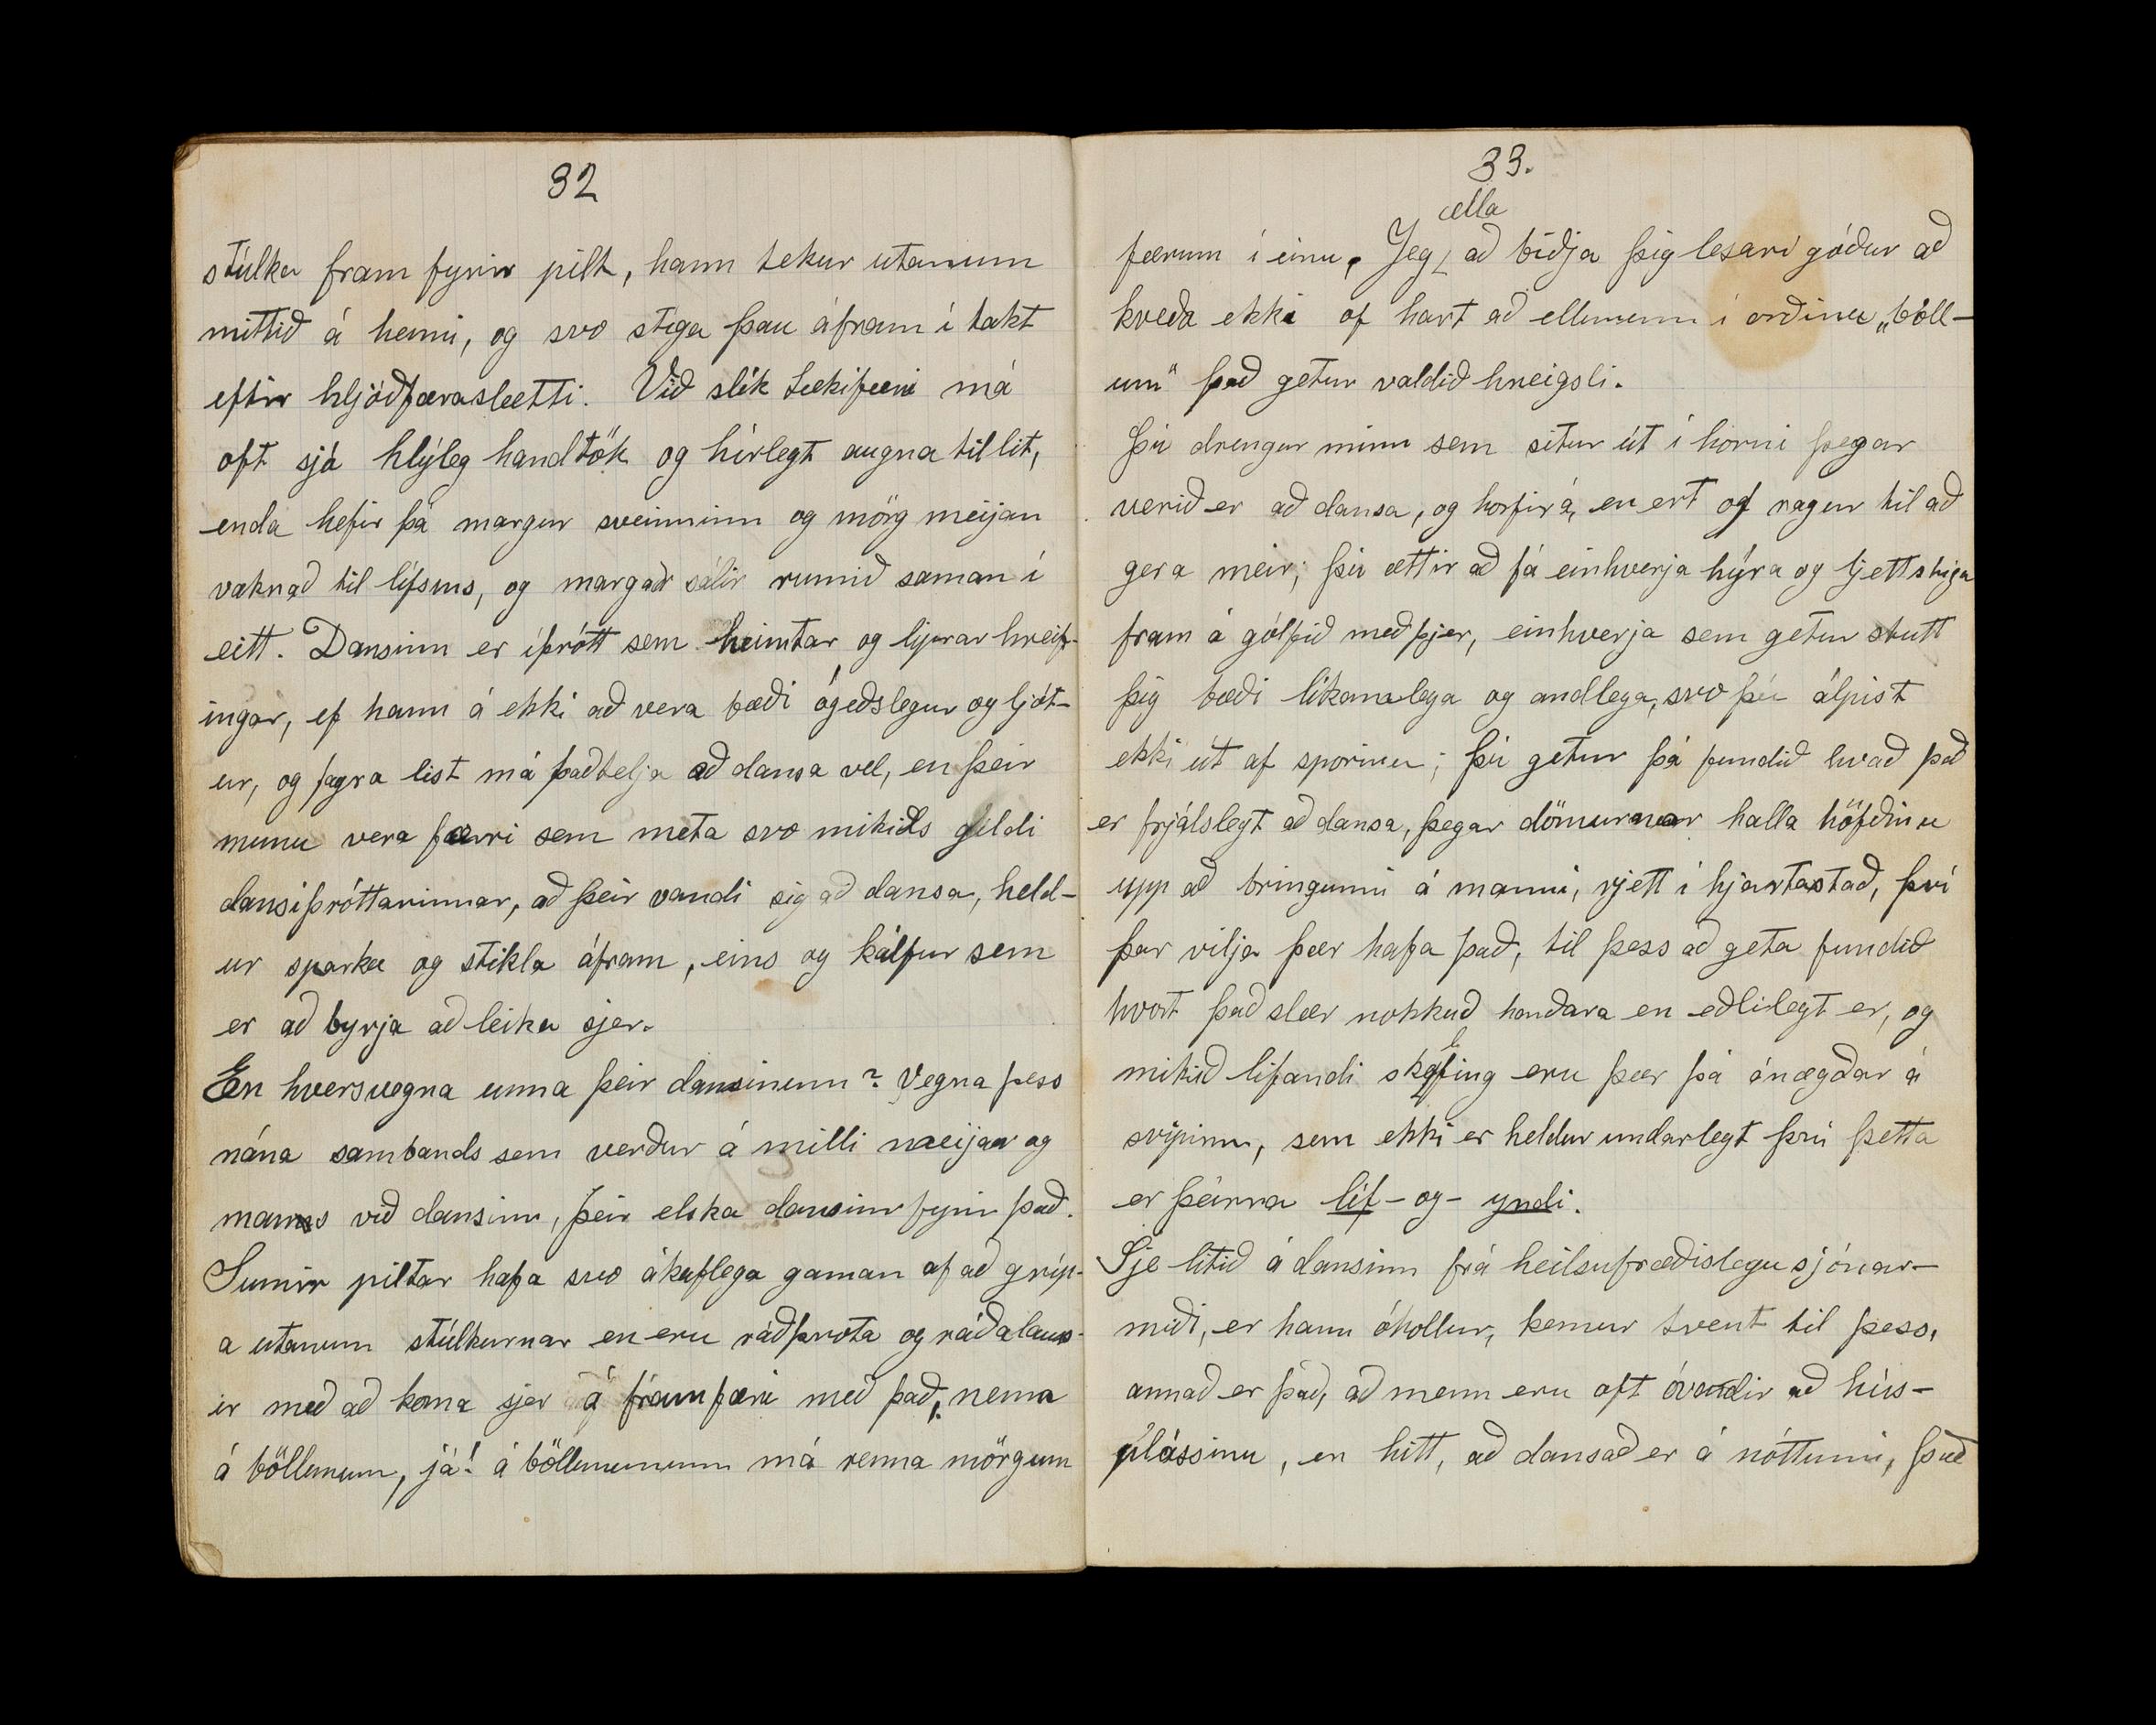 32
stúlka fram fyrir pilt, hann tekur utanum
mittið á henni, og svo stíga þau áfram í takt
eftir hljóðfæraslætti. Við slík tækifæri má
oft sjá hlýleg handtök og hírlegt augnatillit,
enda hefir þá margur sveinninn og mörg meijan
vaknað til lífsins, og margar sálir runnið saman í
eitt. Dansinn er íþrótt sem heimtar og liprar hreif-
ingar, ef hann á ekki að vera bæði ógeðslegur og ljót-
ur, og fagra list má það telja að dansa vel, en þeir
munu vera færri sem meta svo mikils gildi
dansíþróttarinnar, að þeir vandi sig að dansa, held-
ur sparka og stikla áfram, eins og kálfur sem
er að byrja að leika sjer.
En hversvegna unna þeir dansinum? Vegna þess
nána sambands sem verður á milli meijar og
manns við dansinn, þeir elska dansinn fyrir það.
Sumir piltar hafa svo ákaflega gaman af að gríp-
a utanum stúlkurnar en eru ráðþrota og ráðalaus-
ir með að koma sjer á framfæri með það, nema
á böllunum, já! á böllunumum má renna mörgum
33.
færum í einu. Jeg ætla að biðja þig lesari góður að
kveða ekki of hart að ellunum í orðinu „böll-
um" það getur valdið hneigsli.
Þú drengur minn sem situr út í horni þegar
verið er að dansa, og horfir á, en ert of ragur til að
gera meir; þú ættir að fá einhverja hýra og ljettstíga
fram á gólfið með þjer, einhverja sem getur stutt
þig bæði líkamlega og andlega, svo þú álpist
ekki út af sporinu; þú getur þá fundið hvað það
er frjálslegt að dansa, þegar dömurnar halla höfðinu
upp að bringunni á manni, rjett í hjartastað, því
þar vilja þær hafa það, til þess að geta fundið
hvort það slær nokkuð harðara en eðlilegt er, og
mikið lifandi skelfing eru þær þá ánægðar á
svipinn, sem ekki er heldur undarlegt því þetta
er þeirra líf - og - yndi.
Sje litið á dansinn frá heilsufræðislegu sjónar-
miði, er hann óhollur, kemur tvent til þess,
annað er það, að menn eru oft óvandir að hús-
plássinu, en hitt, að dansað er á nóttunni, það